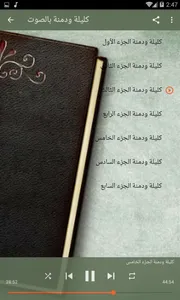 2:47
كليلة ودمنة بالصوت
كليلة ودمنة الجزء الأول
كليلة ودمنة الجزء الثاني
كليلة ودمنة الجزء الثالث
كليلة ودمنة الجزء الرابع
كليلة ودمنة الجزء الخامس
كليلة ودمنة الجزء السادس
كليلة ودمنة الجزء السابع
كليلة ودمنة الجزء الخامس
44:54